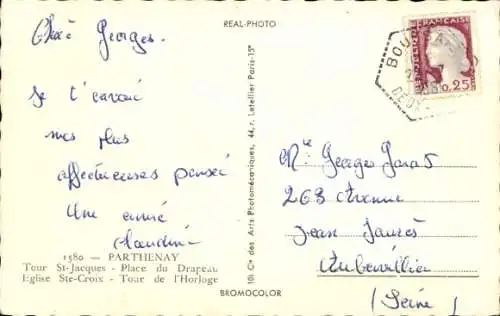 REAL-PHOTO
Chère Georges.
Je t'envoie
mes plus
affectueuses pensée
Une amie
Claudine
1580 — PARTHENAY
Tour St-Jacques - Place du Drapeau
Eglise Ste-Croix - Tour de l'Horloge
10. Cie des Arts Photomécaniques, 44, r. Letellier Paris-15e
BROMOCOLOR
FRANÇAISE
0,25
BOU
Mr Georges
263 Avenue
Jean Jaurès
Aubervillier
(Seine)